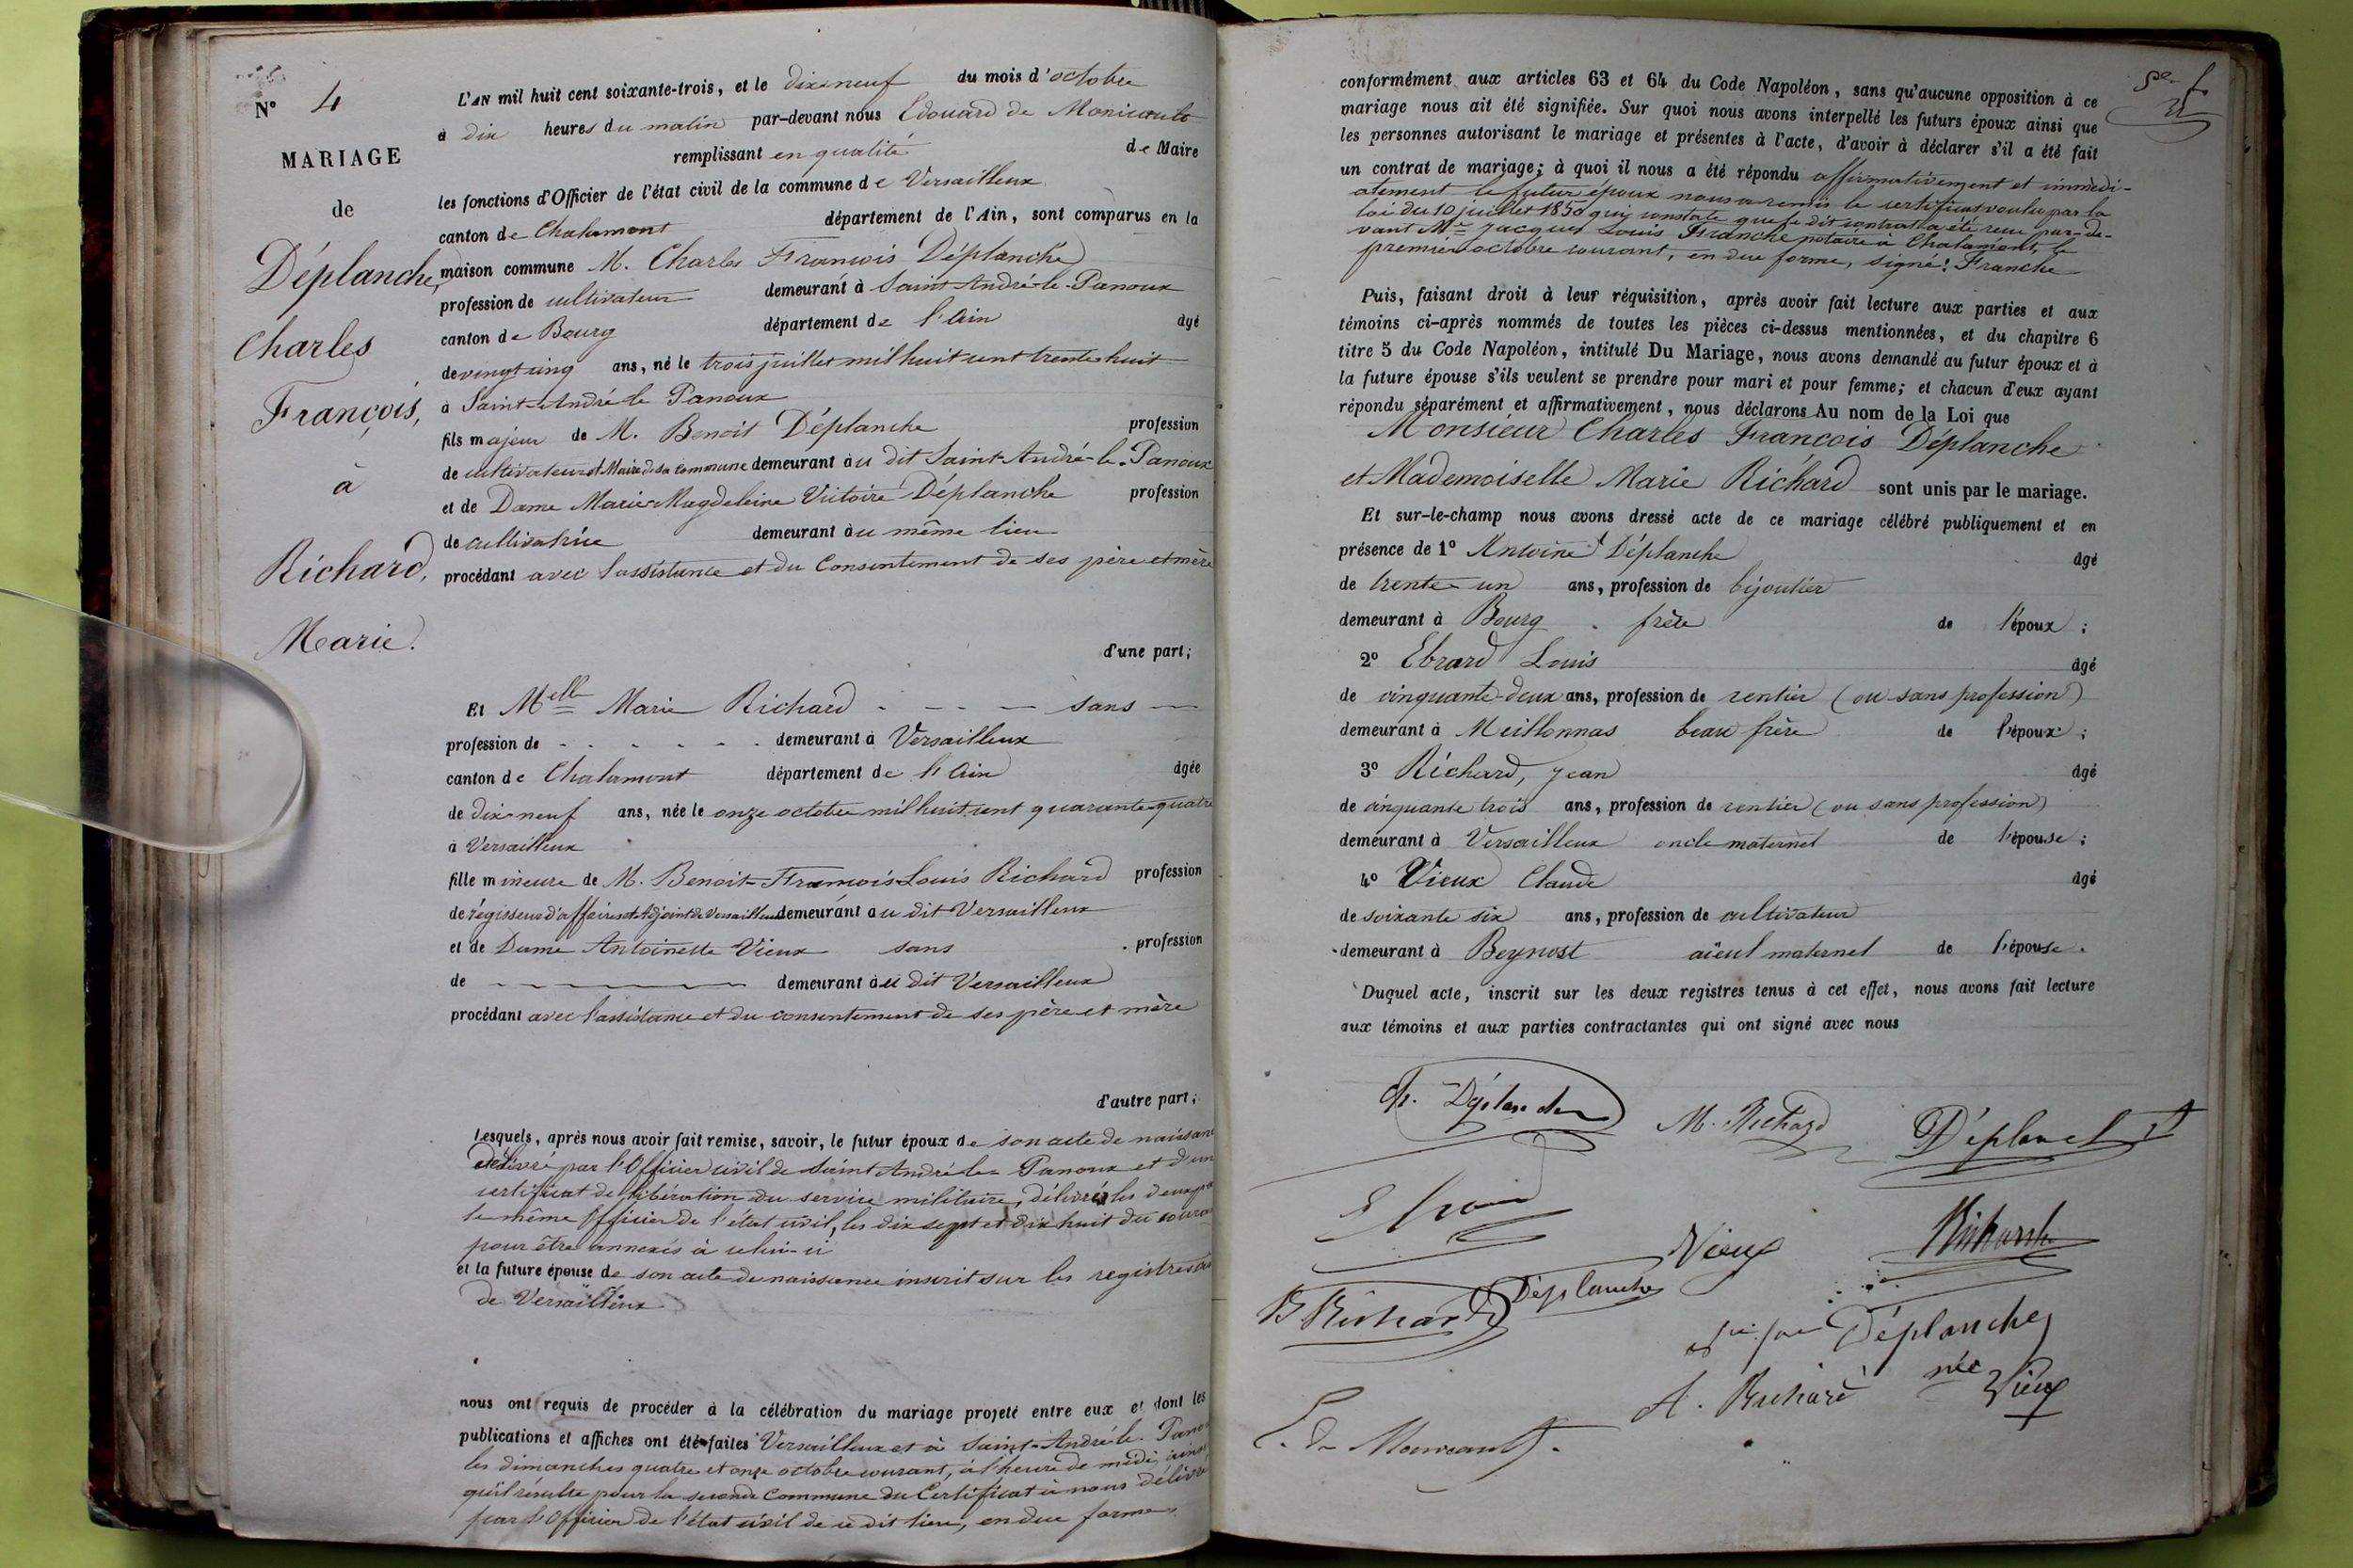 N° 4
MARIAGE
de
Déplanche,
Charles
François,
à
Richard,
Marie.
L'AN mil huit cent soixante-trois, et le dix-neuf du mois d'octobre
à dix heures du matin par-devant nous Edouard de Monicault
remplissant en qualité de Maire
les fonctions d'Officier de l'état civil de la commune de Versailleux
canton de Chalamont département de l'Ain, sont comparus en la
maison commune M. Charles François Déplanche
profession de cultivateur demeurant à Saint-André-le-Panoux
canton de Bourg département de l'Ain âgé
de vingt cinq ans, né le trois juillet mil huit cent trente huit
à Saint-André-le Panoux
fils majeur de M. Benoit Déplanche profession
de cultivateur et Maire de sa commune demeurant au dit Saint-André-le-Panoux
et de Dame Marie Magdeleine Victoire Déplanche profession
de cultivatrice demeurant au même lieu
procédant avec l'assistance et du Consentement de ses père et mère
d'une part;
Et Melle Marie Richard - - - - sans -
profession de - - - - - - demeurant à Versailleux
canton de Chalamont département de l'Ain âgée
de dix-neuf ans, née le onze octobre mil huit cent quarante-quatre
à Versailleux
fille mineure de M. Benoit-François-Louis Richard profession
de régisseur d'affaires et Adjoint de Versailleux demeurant au dit Versailleux
et de Dame Antoinette Vieux sans profession
de demeurant au dit Versailleux
procédant avec l'assistance et du consentement de ses père et mère
d'autre part;
Lesquels, après nous avoir fait remise, savoir, le futur époux de son acte de naissan
délivré par l'Officier civil de Saint André-le-Panoux et d'un
certificat de libération du service militaire, délivrés les deux
le même Officier de l'état civil, les dix sept et dix huit du coura
pour être annexés à celui-ci
et la future épouse de son acte de naissance inscrit sur les registres
de Versailleux
nous ont requis de procéder à la célébration du mariage projeté entre eux et dont les
publications et affiches ont été faites Versailleux et à Saint-André-le-Pano
les dimanches quatre et onze octobre courant, à l'heure de midi, ainsi
qu'il résulte pour la seconde Commune du Certificat à nous délivré
par l'Officier de l'état civil de ce dit lieu, en due forme,
conformément aux articles 63 et 64 du Code Napoléon, sans qu'aucune opposition à ce
mariage nous ait été signifiée. Sur quoi nous avons interpellé les futurs époux ainsi que
les personnes autorisant le mariage et présentes à l'acte, d'avoir à déclarer s'il a été fait
un contrat de mariage; à quoi il nous a été répondu affirmativement et immédi-
atement le futur époux nous a remis le certificat voulu par la
loi du 10 juillet 1850 qui constate que le dit contrat a été reçu par-de-
vant Me Jacques Louis Franche notaire à Chalamont, le
premier octobre courant, en due forme, signé: Franche
Puis, faisant droit à leur réquisition, après avoir fait lecture aux parties et aux
témoins ci-après nommés de toutes les pièces ci-dessus mentionnées, et du chapitre 6
titre 5 du Code Napoléon, intitulé Du Mariage, nous avons demandé au futur époux et à
la future épouse s'ils veulent se prendre pour mari et pour femme; et chacun d'eux ayant
répondu séparément et affirmativement, nous déclarons Au nom de la Loi que
Monsieur Charles François Déplanche
et Mademoiselle Marie Richard sont unis par le mariage.
Et sur-le-champ nous avons dressé acte de ce mariage célébré publiquement et en
présence de 1° Antoine Déplanche âgé
de trente-un ans, profession de bijoutier
demeurant à Bourg frère de l'époux;
2° Ebrard Louis âgé
de cinquante-deux ans, profession de rentier (ou sans profession)
demeurant à Meillonnas beau frère de l'époux;
3° Richard, Jean âgé
de cinquante trois ans, profession de rentier (ou sans profession)
demeurant à Versailleux oncle maternel de l'épouse;
4° Vieux Claude âgé
de soixante six ans, profession de cultivateur
demeurant à Beynost aïeul maternel de l'épouse.
Duquel acte, inscrit sur les deux registres tenus à cet effet, nous avons fait lecture
aux témoins et aux parties contractantes qui ont signé avec nous
Ch. Déplanche M. Richard Déplanche
Ebrard Vieux Richard
B Richard Déplanche
Déplanche
A. Richard née Vieux
E. de Monicault.